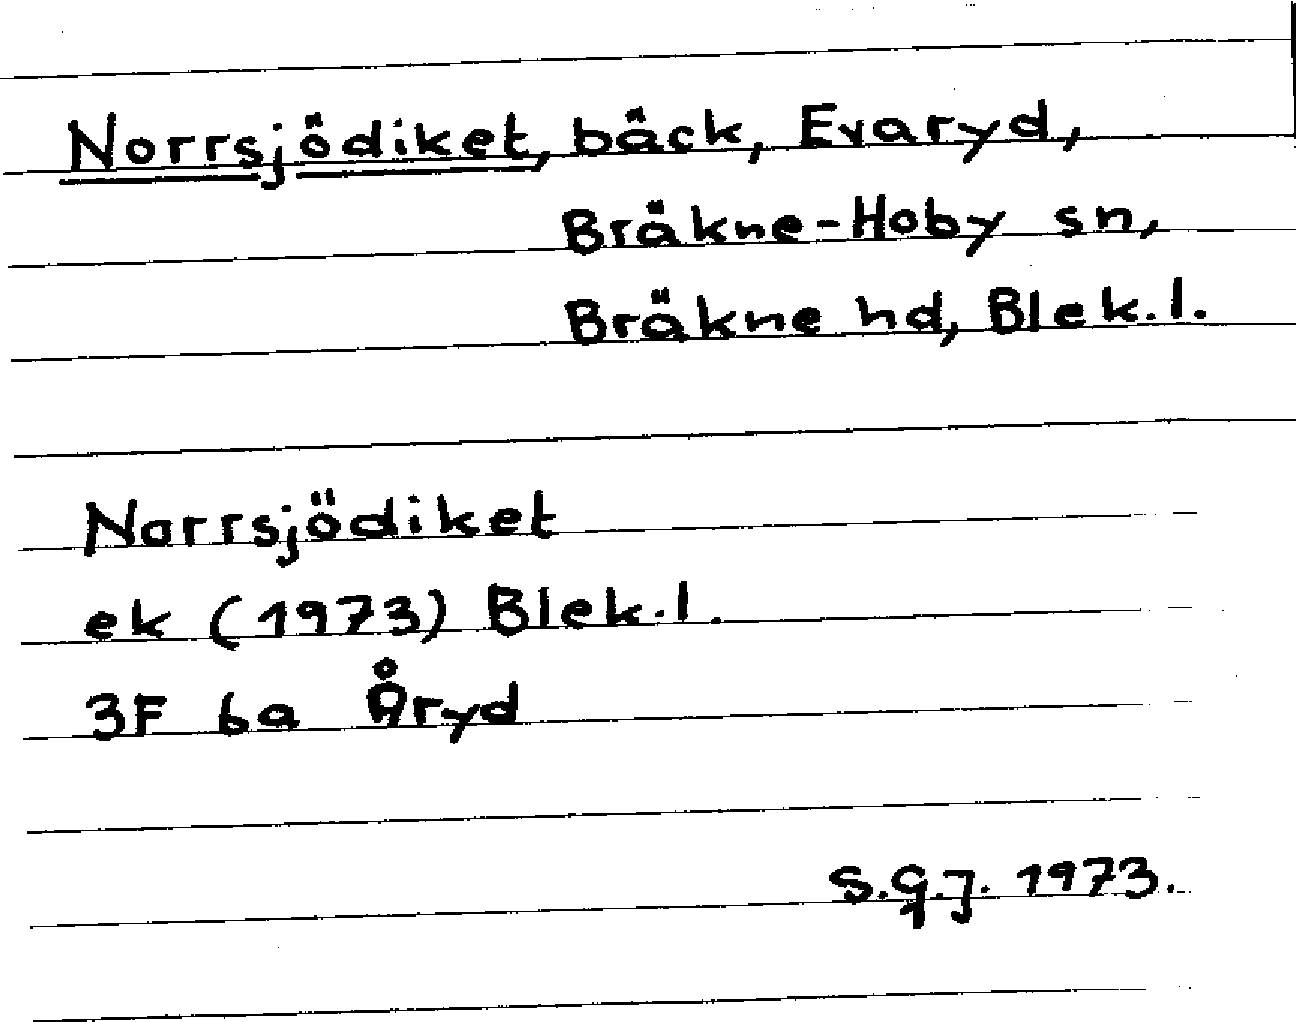 Norrsjödiket, bäck, Evaryd,
Bräkne-Hoby sn,
Bräkne hd, Blek.l.
Norrsjödiket
ek (1973) Blek.l.
3F 6a Åryd
S.G.J. 1973.